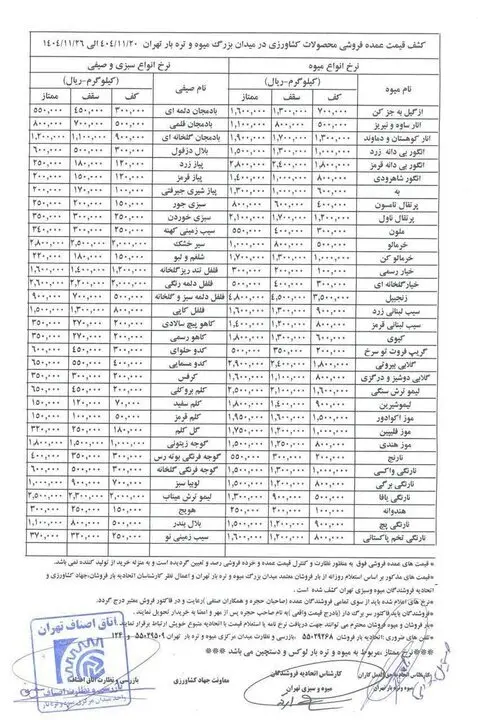 کشف قیمت عمده فروشی محصولات کشاورزی در میدان بزرگ میوه و تره بار تهران ۴۰۴/۱۱/۲۰ الی ۱۴۰۴/۱۱/۲۶
نرخ انواع میوه نرخ انواع سبزی و صیفی
نام میوه (کیلوگرم-ریال) نام صیفی (کیلوگرم-ریال)
کف سقف ممتاز کف سقف ممتاز
ازگیل به جز کن ۷۰۰,۰۰۰ ۱,۳۰۰,۰۰۰ ۱,۶۰۰,۰۰۰ بادمجان دلمه ای ۳۰۰,۰۰۰ ۴۵۰,۰۰۰ ۵۵۰,۰۰۰
انار ساوه و نیریز ۵۰۰,۰۰۰ ۸۰۰,۰۰۰ ۱,۱۰۰,۰۰۰ بادمجان قلمی ۵۰۰,۰۰۰ ۷۰۰,۰۰۰ ۸۰۰,۰۰۰
انار کوهستان و دماوند ۱,۳۰۰,۰۰۰ ۱,۷۰۰,۰۰۰ ۱,۹۰۰,۰۰۰ بادمجان گلخانه ای ۹۰۰,۰۰۰ ۱,۱۰۰,۰۰۰ ۱,۲۰۰,۰۰۰
انگور بی دانه زرد ۱,۰۰۰,۰۰۰ ۱,۳۰۰,۰۰۰ ۱,۵۰۰,۰۰۰ بلال دزفول ۳۰۰,۰۰۰ ۵۰۰,۰۰۰ ۶۰۰,۰۰۰
انگور بی دانه قرمز ۱,۸۰۰,۰۰۰ ۲,۴۰۰,۰۰۰ ۲,۸۰۰,۰۰۰ پیاز زرد ۱۲۰,۰۰۰ ۱۸۰,۰۰۰ ۲۵۰,۰۰۰
انگور شاهرودی ۸۰۰,۰۰۰ ۱,۲۰۰,۰۰۰ ۱,۴۰۰,۰۰۰ پیاز قرمز ۱۲۰,۰۰۰ ۱۵۰,۰۰۰ ۲۰۰,۰۰۰
به ۶۰۰,۰۰۰ ۱,۰۰۰,۰۰۰ ۱,۳۰۰,۰۰۰ پیاز شیری جیرفتی ۱۰۰,۰۰۰ ۱۷۰,۰۰۰ ۲۰۰,۰۰۰
پرتقال تامسون ۴۰۰,۰۰۰ ۶۰۰,۰۰۰ ۸۰۰,۰۰۰ سبزی جور ۱۵۰,۰۰۰ ۲۰۰,۰۰۰ ۲۵۰,۰۰۰
پرتقال ناول ۱,۲۰۰,۰۰۰ ۱,۷۰۰,۰۰۰ ۲,۱۰۰,۰۰۰ سبزی خوردن ۲۵۰,۰۰۰ ۳۰۰,۰۰۰ ۳۵۰,۰۰۰
ملون ۳۰۰,۰۰۰ ۴۰۰,۰۰۰ ۵۵۰,۰۰۰ سیب زمینی کهنه ۲۰۰,۰۰۰ ۳۰۰,۰۰۰ ۳۴۰,۰۰۰
خرمالو ۵۰۰,۰۰۰ ۸۰۰,۰۰۰ ۱,۰۰۰,۰۰۰ سیر خشکه ۲,۰۰۰,۰۰۰ ۲,۵۰۰,۰۰۰ ۲,۸۰۰,۰۰۰
خرمالو کن ۱,۰۰۰,۰۰۰ ۱,۳۰۰,۰۰۰ ۱,۷۰۰,۰۰۰ شلغم و لبو ۱۵۰,۰۰۰ ۱۸۰,۰۰۰ ۲۲۰,۰۰۰
خیار رسمی ۱۰۰,۰۰۰ ۲۰۰,۰۰۰ ۳۰۰,۰۰۰ فلفل تند ریز گلخانه ۱,۲۰۰,۰۰۰ ۱,۴۰۰,۰۰۰ ۱,۶۰۰,۰۰۰
خیار گلخانه ای ۳۰۰,۰۰۰ ۴۰۰,۰۰۰ ۵۰۰,۰۰۰ فلفل دلمه رنگی ۲,۰۰۰,۰۰۰ ۲,۲۰۰,۰۰۰ ۲,۶۰۰,۰۰۰
زنجبیل ۳,۵۰۰,۰۰۰ ۴,۵۰۰,۰۰۰ ۴,۸۰۰,۰۰۰ فلفل دلمه سبز و گلخانه ۵۰۰,۰۰۰ ۷۰۰,۰۰۰ ۹۰۰,۰۰۰
سیب لبنانی زرد ۹۰۰,۰۰۰ ۱,۳۰۰,۰۰۰ ۱,۶۰۰,۰۰۰ فلفل کاپی ۸۰۰,۰۰۰ ۱,۳۰۰,۰۰۰ ۱,۵۰۰,۰۰۰
سیب لبنانی قرمز ۸۰۰,۰۰۰ ۱,۲۰۰,۰۰۰ ۱,۴۰۰,۰۰۰ کاهو پیچ سالادی ۲۰۰,۰۰۰ ۲۷۰,۰۰۰ ۳۵۰,۰۰۰
کیوی ۱,۰۰۰,۰۰۰ ۱,۳۰۰,۰۰۰ ۱,۸۰۰,۰۰۰ کاهو رسمی ۲۰۰,۰۰۰ ۲۷۰,۰۰۰ ۳۵۰,۰۰۰
گریپ فروت تو سرخ ۲۰۰,۰۰۰ ۳۵۰,۰۰۰ ۵۰۰,۰۰۰ کدو حلوای ۳۰۰,۰۰۰ ۴۵۰,۰۰۰ ۶۰۰,۰۰۰
گلابی بیروتی ۱,۸۰۰,۰۰۰ ۲,۴۰۰,۰۰۰ ۲,۹۰۰,۰۰۰ کدو مسمایی ۴۰۰,۰۰۰ ۵۵۰,۰۰۰ ۶۵۰,۰۰۰
گلابی دوشیز و درگزی ۸۰۰,۰۰۰ ۱,۱۰۰,۰۰۰ ۱,۶۰۰,۰۰۰ کرفس ۲۰۰,۰۰۰ ۳۰۰,۰۰۰ ۳۵۰,۰۰۰
لیمو ترش سنگی ۲,۵۰۰,۰۰۰ ۳,۱۰۰,۰۰۰ ۱,۶۰۰,۰۰۰ کلم بروکلی ۲۰۰,۰۰۰ ۴۵۰,۰۰۰ ۶۵۰,۰۰۰
لیموشیرین ۹۰۰,۰۰۰ ۱,۴۰۰,۰۰۰ ۱,۸۰۰,۰۰۰ کلم سفید ۷۰,۰۰۰ ۱۲۰,۰۰۰ ۱۵۰,۰۰۰
موز اکوادور ۱,۵۰۰,۰۰۰ ۱,۶۵۰,۰۰۰ ۱,۹۵۰,۰۰۰ کلم قرمز ۵۰,۰۰۰ ۱۰۰,۰۰۰ ۱۵۰,۰۰۰
موز فلیپین ۱,۲۰۰,۰۰۰ ۱,۵۰۰,۰۰۰ ۱,۷۵۰,۰۰۰ گل کلم ۱۸۰,۰۰۰ ۲۵۰,۰۰۰ ۳۲۰,۰۰۰
موز هندی ۸۰۰,۰۰۰ ۱,۲۵۰,۰۰۰ ۱,۵۰۰,۰۰۰ گوجه زیتونی ۱,۰۰۰,۰۰۰ ۱,۵۰۰,۰۰۰ ۱,۸۰۰,۰۰۰
نارنج ۲۰۰,۰۰۰ ۳۰۰,۰۰۰ ۵۵۰,۰۰۰ گوجه فرنگی بوته رس ۳۰۰,۰۰۰ ۴۰۰,۰۰۰ ۶۰۰,۰۰۰
نارنگی واکسی ۱,۰۰۰,۰۰۰ ۱,۳۰۰,۰۰۰ ۱,۵۰۰,۰۰۰ گوجه فرنگی گلخانه ۴۰۰,۰۰۰ ۵۰۰,۰۰۰ ۵۰۰,۰۰۰
نارنگی برگی ۸۰۰,۰۰۰ ۱,۲۰۰,۰۰۰ ۱,۶۰۰,۰۰۰ لوبیا سبز ۵۰۰,۰۰۰ ۷۰۰,۰۰۰ ۹۰۰,۰۰۰
نارنگی یافا ۵۰۰,۰۰۰ ۹۰۰,۰۰۰ ۱,۳۰۰,۰۰۰ لیمو ترش میناب ۲,۰۰۰,۰۰۰ ۲,۳۰۰,۰۰۰ ۲,۵۰۰,۰۰۰
هندوانه ۱۰۰,۰۰۰ ۲۰۰,۰۰۰ ۳۰۰,۰۰۰ هویج ۱۵۰,۰۰۰ ۲۵۰,۰۰۰ ۳۰۰,۰۰۰
نارنگی پیج ۵۰۰,۰۰۰ ۱,۰۰۰,۰۰۰ ۱,۲۰۰,۰۰۰ بلال بندر ۵۰۰,۰۰۰ ۸۰۰,۰۰۰ ۱,۱۰۰,۰۰۰
نارنگی تخم پاکستانی ۸۰۰,۰۰۰ ۱,۲۰۰,۰۰۰ ۱,۶۰۰,۰۰۰ سیب زمینی نو ۲۵۰,۰۰۰ ۳۲۰,۰۰۰ ۳۷۰,۰۰۰
* قیمت های عمده فروشی فوق به منظور نظارت و کنترل قیمت عمده و خرده فروشی رصد و تعیین گردیده است و به منزله خرید از تولید کننده نمی باشد.
*قیمت های مذکور بر اساس استعلام روزانه از بار فروشان معتمد میدان بزرگ میوه و تره بار تهران و اعمال نظر کارشناسان اتحادیه بارفروشان، جهاد کشاورزی و
اتحادیه فروشندگان میوه وسبزی تهران کشف شده است.
*نرخ های اعلام شده باید از سوی تمامی فروشندگان عمده (صاحبان حجره و همکاران صنفی) رعایت و در فاکتور فروش معتبر درج گردد.
*فروشندگان باید فاکتور سر برگ دار (بادرج قیمت واقعی )به نام صاحب حجره پس از مهر و امضا به خریدار تحویل نمایند.
*بار فروشان و میوه فروشان محترم می توانند جهت دریافت نرخ نامه یا استعلام قیمت با اتحادیه متبوع خویش ارتباط برقرار نمایند.
*تلفن های ضروری: اتحادیه بار فروشان ۵۵۰۲۹۲۶۸ بازرسی و نظارت میدان مرکزی میوه و تره بار تهران ۵۵۰۴۹۵۰۹ و ۱۲۴
***نرخ ممتاز ،مربوط به میوه و تره بار لوکس و دستچین می باشد***
میوه و تره بار تهران
کارشناس اتحادیه فروشندگان
میوه و سبزی تهران
معاونت جهاد کشاورزی
بازرسی و نظارت اتاق اصناف
اتاق اصناف تهران
بازرسی و نظارت اصناف